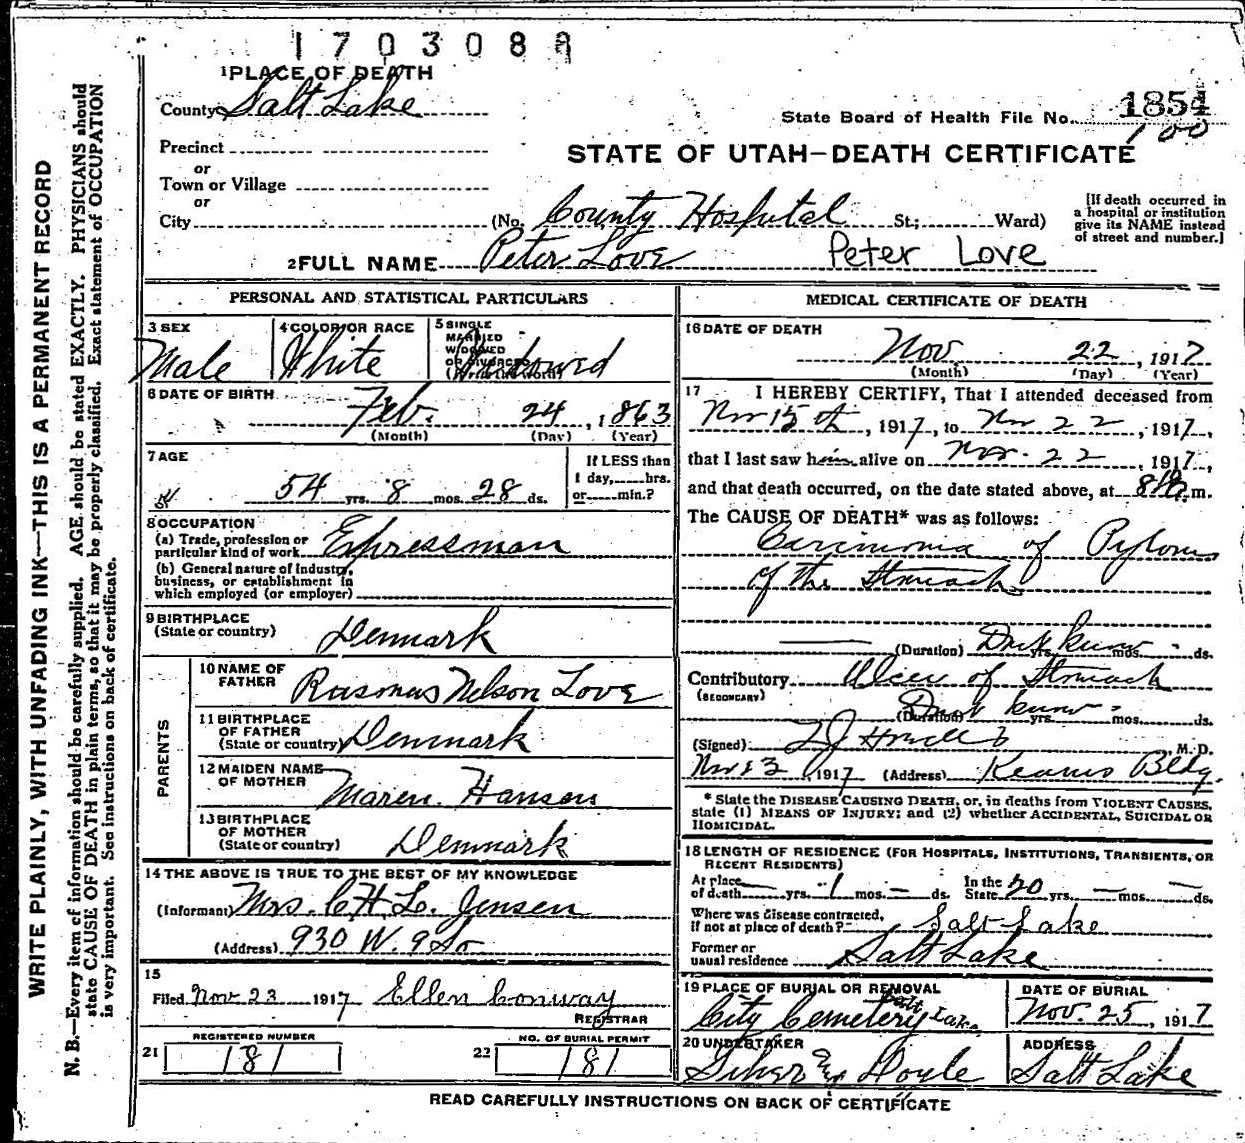 1703088
1 PLACE OF DEATH
County Salt Lake
State Board of Health File No. 1854
100
Precinct
or
STATE OF UTAH—DEATH CERTIFICATE
Town or Village
or
City (No. County Hospital St; Ward)
[If death occurred in a hospital or institution give its NAME instead of street and number.]
2 FULL NAME Peter Love Peter Love
PERSONAL AND STATISTICAL PARTICULARS
3 SEX
Male
4 COLOR OR RACE
White
5 SINGLE
MARRIED
WIDOWED
OR DIVORCED
(Write the word)
Widowed
6 DATE OF BIRTH
Feb. 24, 1863
(Month) (Day) (Year)
7 AGE
54 yrs. 8 mos. 28 ds.
If LESS than
1 day, hrs.
or min.?
8 OCCUPATION
(a) Trade, profession or
particular kind of work Expressman
(b) General nature of Industry,
business, or establishment in
which employed (or employer)
9 BIRTHPLACE
(State or country) Denmark
PARENTS
10 NAME OF
FATHER Rasmus Nelson Love
11 BIRTHPLACE
OF FATHER
(State or country) Denmark
12 MAIDEN NAME
OF MOTHER Maren Hansen
13 BIRTHPLACE
OF MOTHER
(State or country) Denmark
14 THE ABOVE IS TRUE TO THE BEST OF MY KNOWLEDGE
(Informant) Mrs. C H L. Jensen
(Address) 930 W. 9 So
15
Filed Nov 23 1917 Ellen Conway
REGISTRAR
REGISTERED NUMBER
21 181
NO. OF BURIAL PERMIT
22 181
MEDICAL CERTIFICATE OF DEATH
16 DATE OF DEATH
Nov. 22, 1917
(Month) (Day) (Year)
17 I HEREBY CERTIFY, That I attended deceased from
Nov 15th, 1917, to Nov 22, 1917,
that I last saw him alive on Nov. 22, 1917,
and that death occurred, on the date stated above, at m.
The CAUSE OF DEATH* was as follows:
Carcinoma of Pylorus
of the Stomach
(Duration) Dont know yrs. mos. ds.
Contributory Ulcer of Stomach
(SECONDARY)
(Duration) Dont know yrs. mos. ds.
(Signed) M. D.
Nov 23, 1917 (Address) Kearns Bldg.
* State the DISEASE CAUSING DEATH, or, in deaths from VIOLENT CAUSES,
state (1) MEANS OF INJURY; and (2) whether ACCIDENTAL, SUICIDAL OR
HOMICIDAL.
18 LENGTH OF RESIDENCE (FOR HOSPITALS, INSTITUTIONS, TRANSIENTS, OR
RECENT RESIDENTS)
At place
of death — yrs. 1 mos. — ds.
In the
State 20 yrs. — mos. — ds.
Where was disease contracted,
if not at place of death?- Salt Lake
Former or
usual residence Salt Lake
19 PLACE OF BURIAL OR REMOVAL
City Cemetery Salt Lake
DATE OF BURIAL
Nov. 25, 1917
20 UNDERTAKER
Doyle
ADDRESS
Salt Lake
READ CAREFULLY INSTRUCTIONS ON BACK OF CERTIFICATE
WRITE PLAINLY, WITH UNFADING INK—THIS IS A PERMANENT RECORD
N. B.—Every item of information should be carefully supplied. AGE should be stated EXACTLY. PHYSICIANS should
state CAUSE OF DEATH in plain terms, so that it may be properly classified. Exact statement of OCCUPATION
is very important. See instructions on back of certificate.